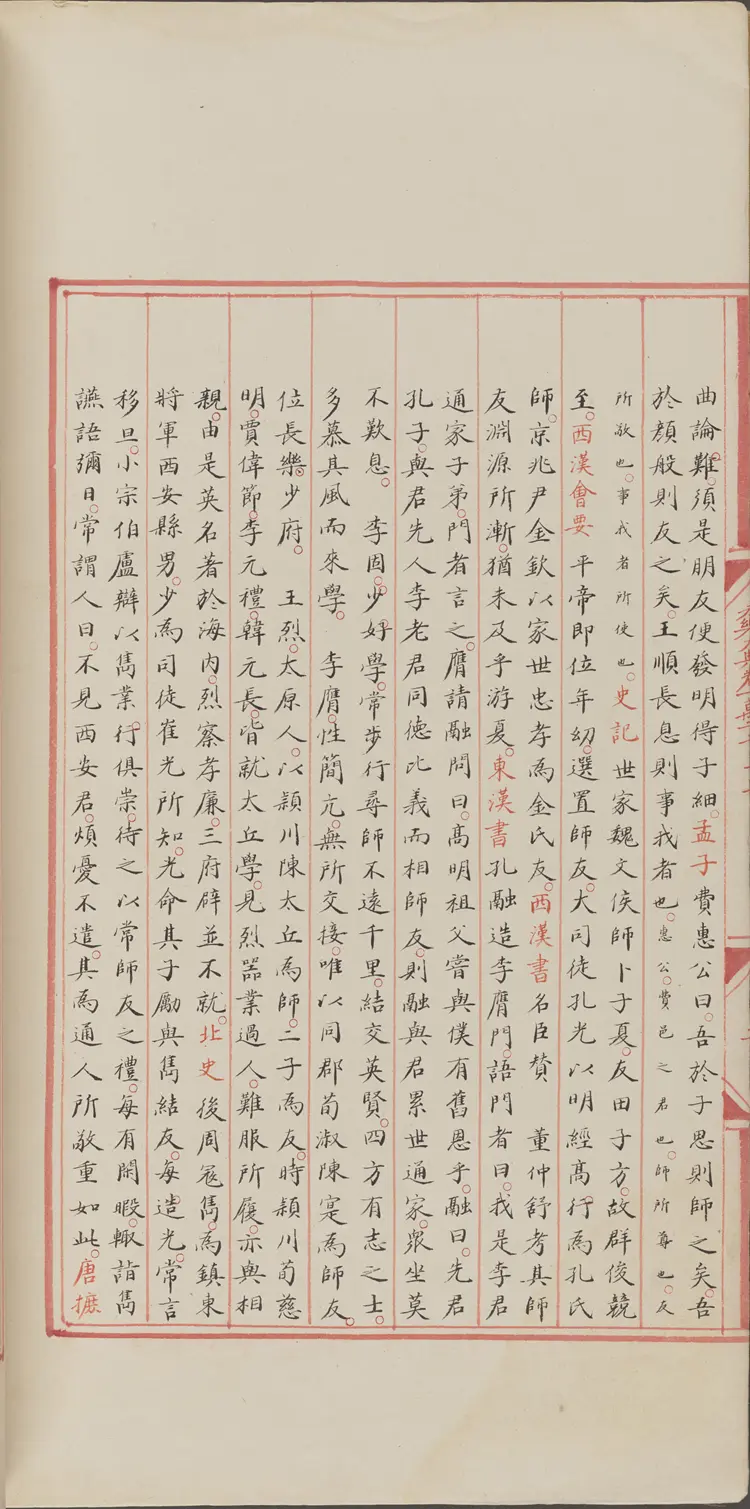 曲論難。須是朋友便發明得子細。孟子費惠公曰。吾於子思則師之矣。吾
於顏般則友之矣。王順長息則事我者也。惠公。費邑之君也。師所尊也。友
所敬也。事我者所使也。史記世家魏文侯師卜子夏。友田子方。故群俊競
至。西漢會要 平帝即位年幼。選置師友。大司徒孔光以明經高行為孔氏
師。京兆尹金欽以家世忠孝為金氏友。西漢書名臣贊 董仲舒考其師
友淵源所漸。猶未及乎游夏。東漢書孔融造李膺門。語門者曰。我是李君
通家子弟。門者言之。膺請融問曰。高明祖父嘗與僕有舊恩乎。融曰。先君
孔子。與君先人李老君同德比義而相師友。則融與君累世通家。眾坐莫
不歎息。 李固。少好學。常步行尋師不遠千里。結交英賢。四方有志之士。
多慕其風而來學。 李膺。性簡亢。無所交接。唯以同郡荀淑陳寔為師友。
位長樂少府。 王烈。太原人。以潁川陳太丘為師。二子為友。時潁川荀慈
明。賈偉節。李元禮。韓元長。皆就太丘學。見烈器業過人。難服所履。亦與相
親。由是英名著於海內。烈察孝廉。三府辟並不就。北史後周冦雋。為鎮東
將軍西安縣男。少為司徒崔光所知。光命其子勵與雋結友。每造光。常言
移旦。小宗伯盧辯以雋業行俱崇。待之以常師友之禮。每有閑暇。輙詣雋
讌語彌日。常謂人曰。不見西安君。煩憂不遣。其為通人所敬重如此。唐摭